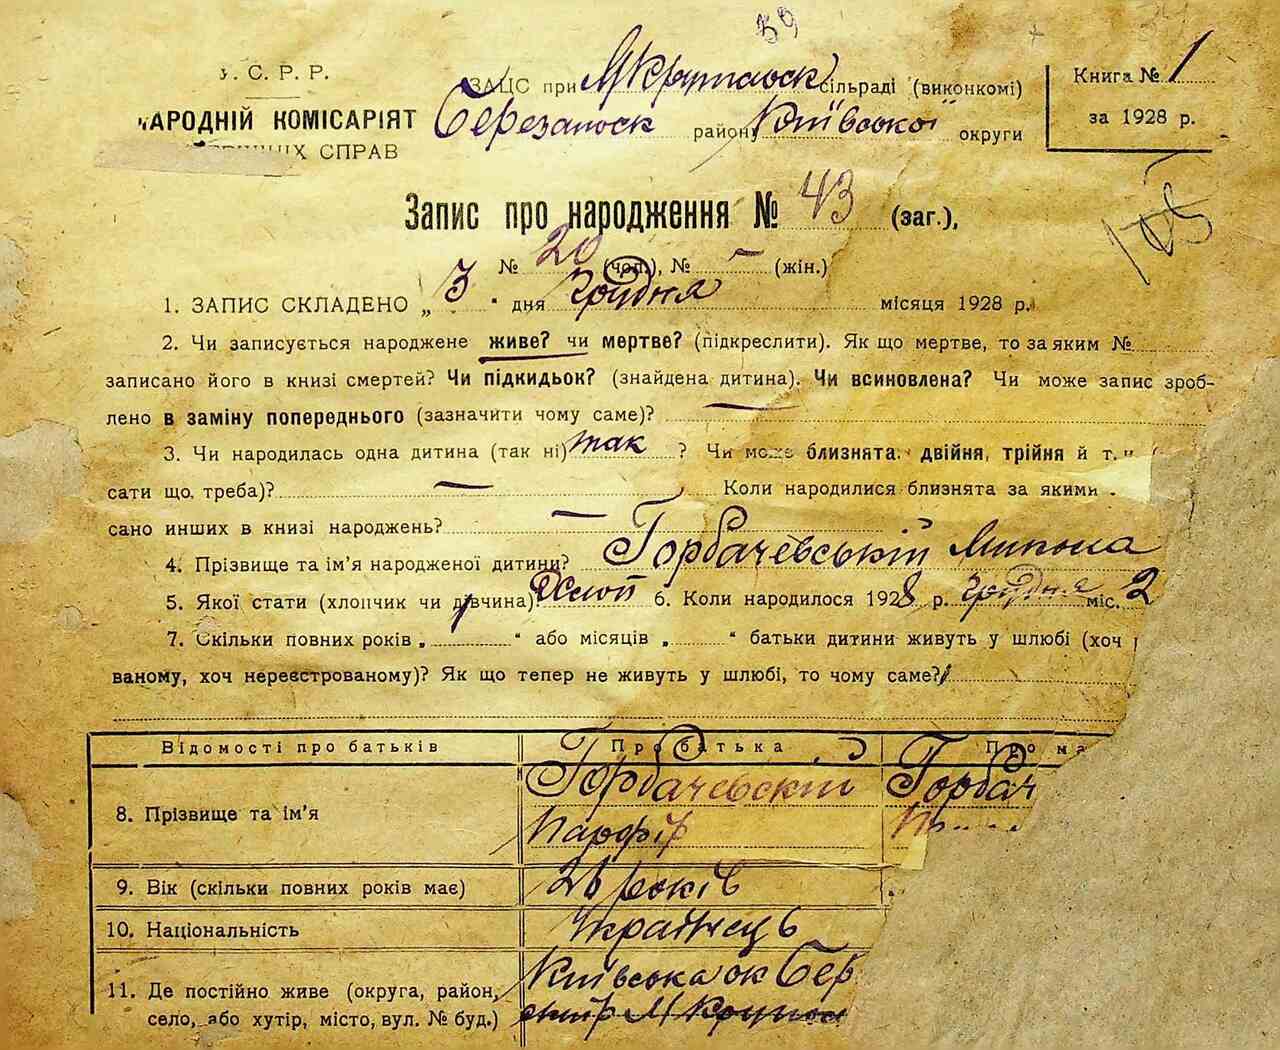 59
У. С. Р. Р.
НАРОДНІЙ КОМІСАРІЯТ
СПРАВ
ЗАЦС при М Крупольск сільраді (виконкомі)
Березанськ району Київської округи
Книга № 1
за 1928 р.
105
Запис про народження № 43 (заг.),
№ 20 (чол.), № — (жін.)
1. ЗАПИС СКЛАДЕНО „ 3 " дня Грудня місяця 1928 р.
2. Чи записується народжене живе? чи мертве? (підкреслити). Як що мертве, то за яким №
записано його в книзі смертей? Чи підкидьок? (знайдена дитина). Чи всиновлена? Чи може запис зроб-
лено в заміну попереднього (зазначити чому саме)? —
3. Чи народилась одна дитина (так ні) так ? Чи може близнята, двійня, трійня й т.
сати що, треба)? — Коли народилися близнята за якими
сано инших в книзі народжень? —
4. Прізвище та ім'я народженої дитини? Горбачевській Микола
5. Якої стати (хлопчик чи дівчина) Хлоп 6. Коли народилося 1928 р. грудня міс. 2
7. Скільки повних років „ " або місяців „ " батьки дитини живуть у шлюбі (хоч
ваному, хоч нереєстрованому)? Як що тепер не живуть у шлюбі, то чому саме?
Відомості про батьків Про батька Про ма
8. Прізвище та ім'я Горбачевский Горбач
Парфір
9. Вік (скільки повних років має) 28 років
10. Національність Українець
11. Де постійно живе (округа, район, Київська ок Бер
село, або хутір, місто, вул. № буд.) М Крупол